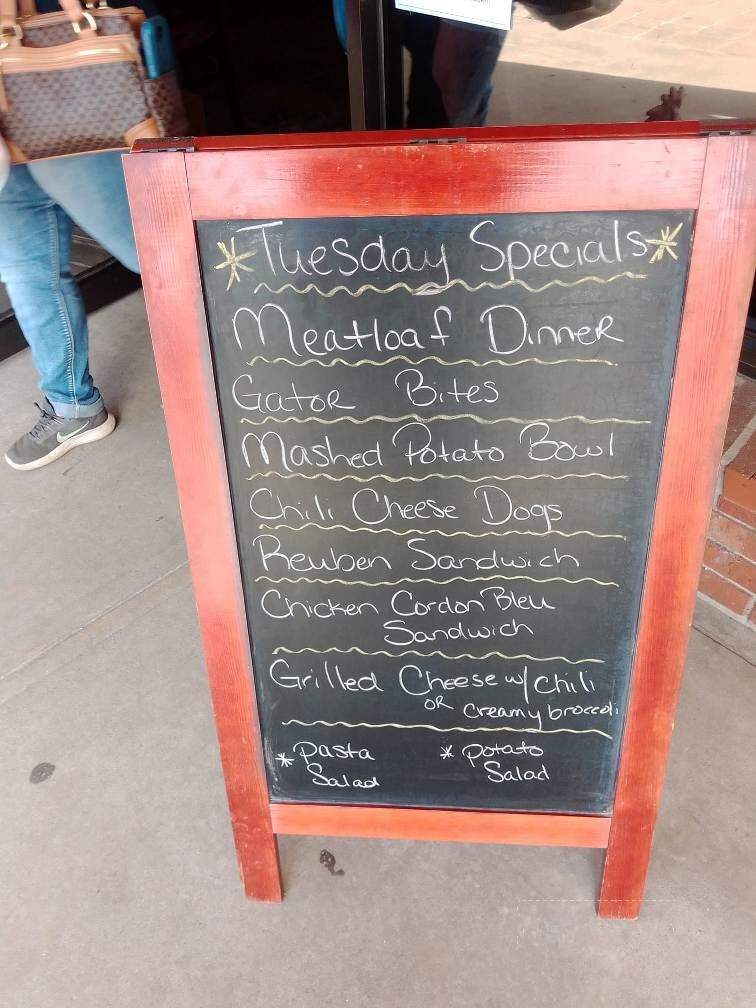 *Tuesday Specials*
Meatloaf Dinner
Gator Bites
Mashed Potato Bowl
Chili Cheese Dogs
Reuben Sandwich
Chicken Cordon Bleu
Sandwich
Grilled Cheese w/ chili
OR creamy broccoli
* Pasta Salad
* Potato Salad